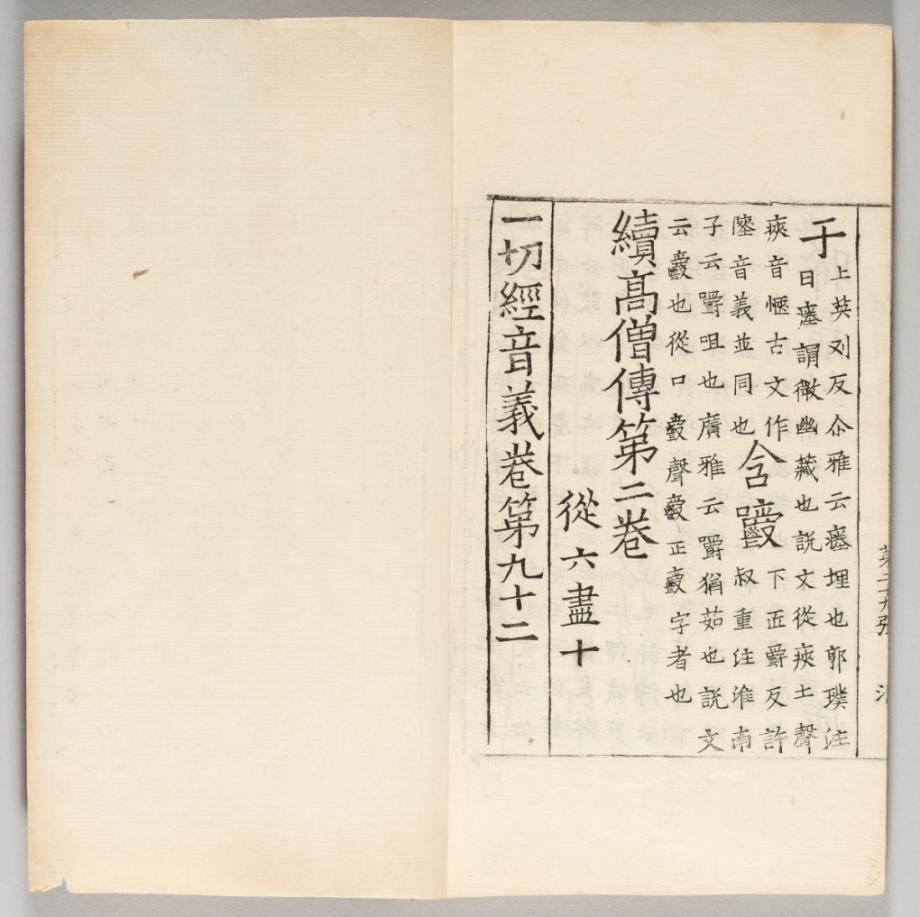 于
上英列反尒雅云瘞埋也郭璞注
日瘞謂微幽藏也說文從㾜土聲
㾜音愜古文作
音義並同也
含嚼
下匠爵反許
叔重注淮南
子云嚼咀也廣雅云嚼猶茹也說文
云也從口聲正字者也
續髙僧傳第二卷
從六盡十
一切經音義卷第九十二